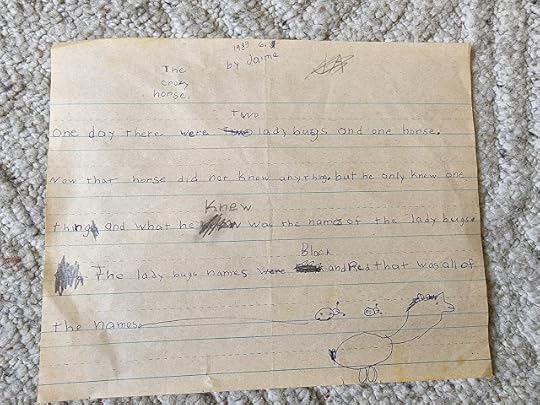 1989
by Jaime
The
crazy
horse.
Two
One day there were lady bugs and one horse.
Now that horse did not know any thing. but he only knew one
Knew
thing and what he was the names of the lady bugs.
Black
The lady bugs names were and Red that was all of
the names.